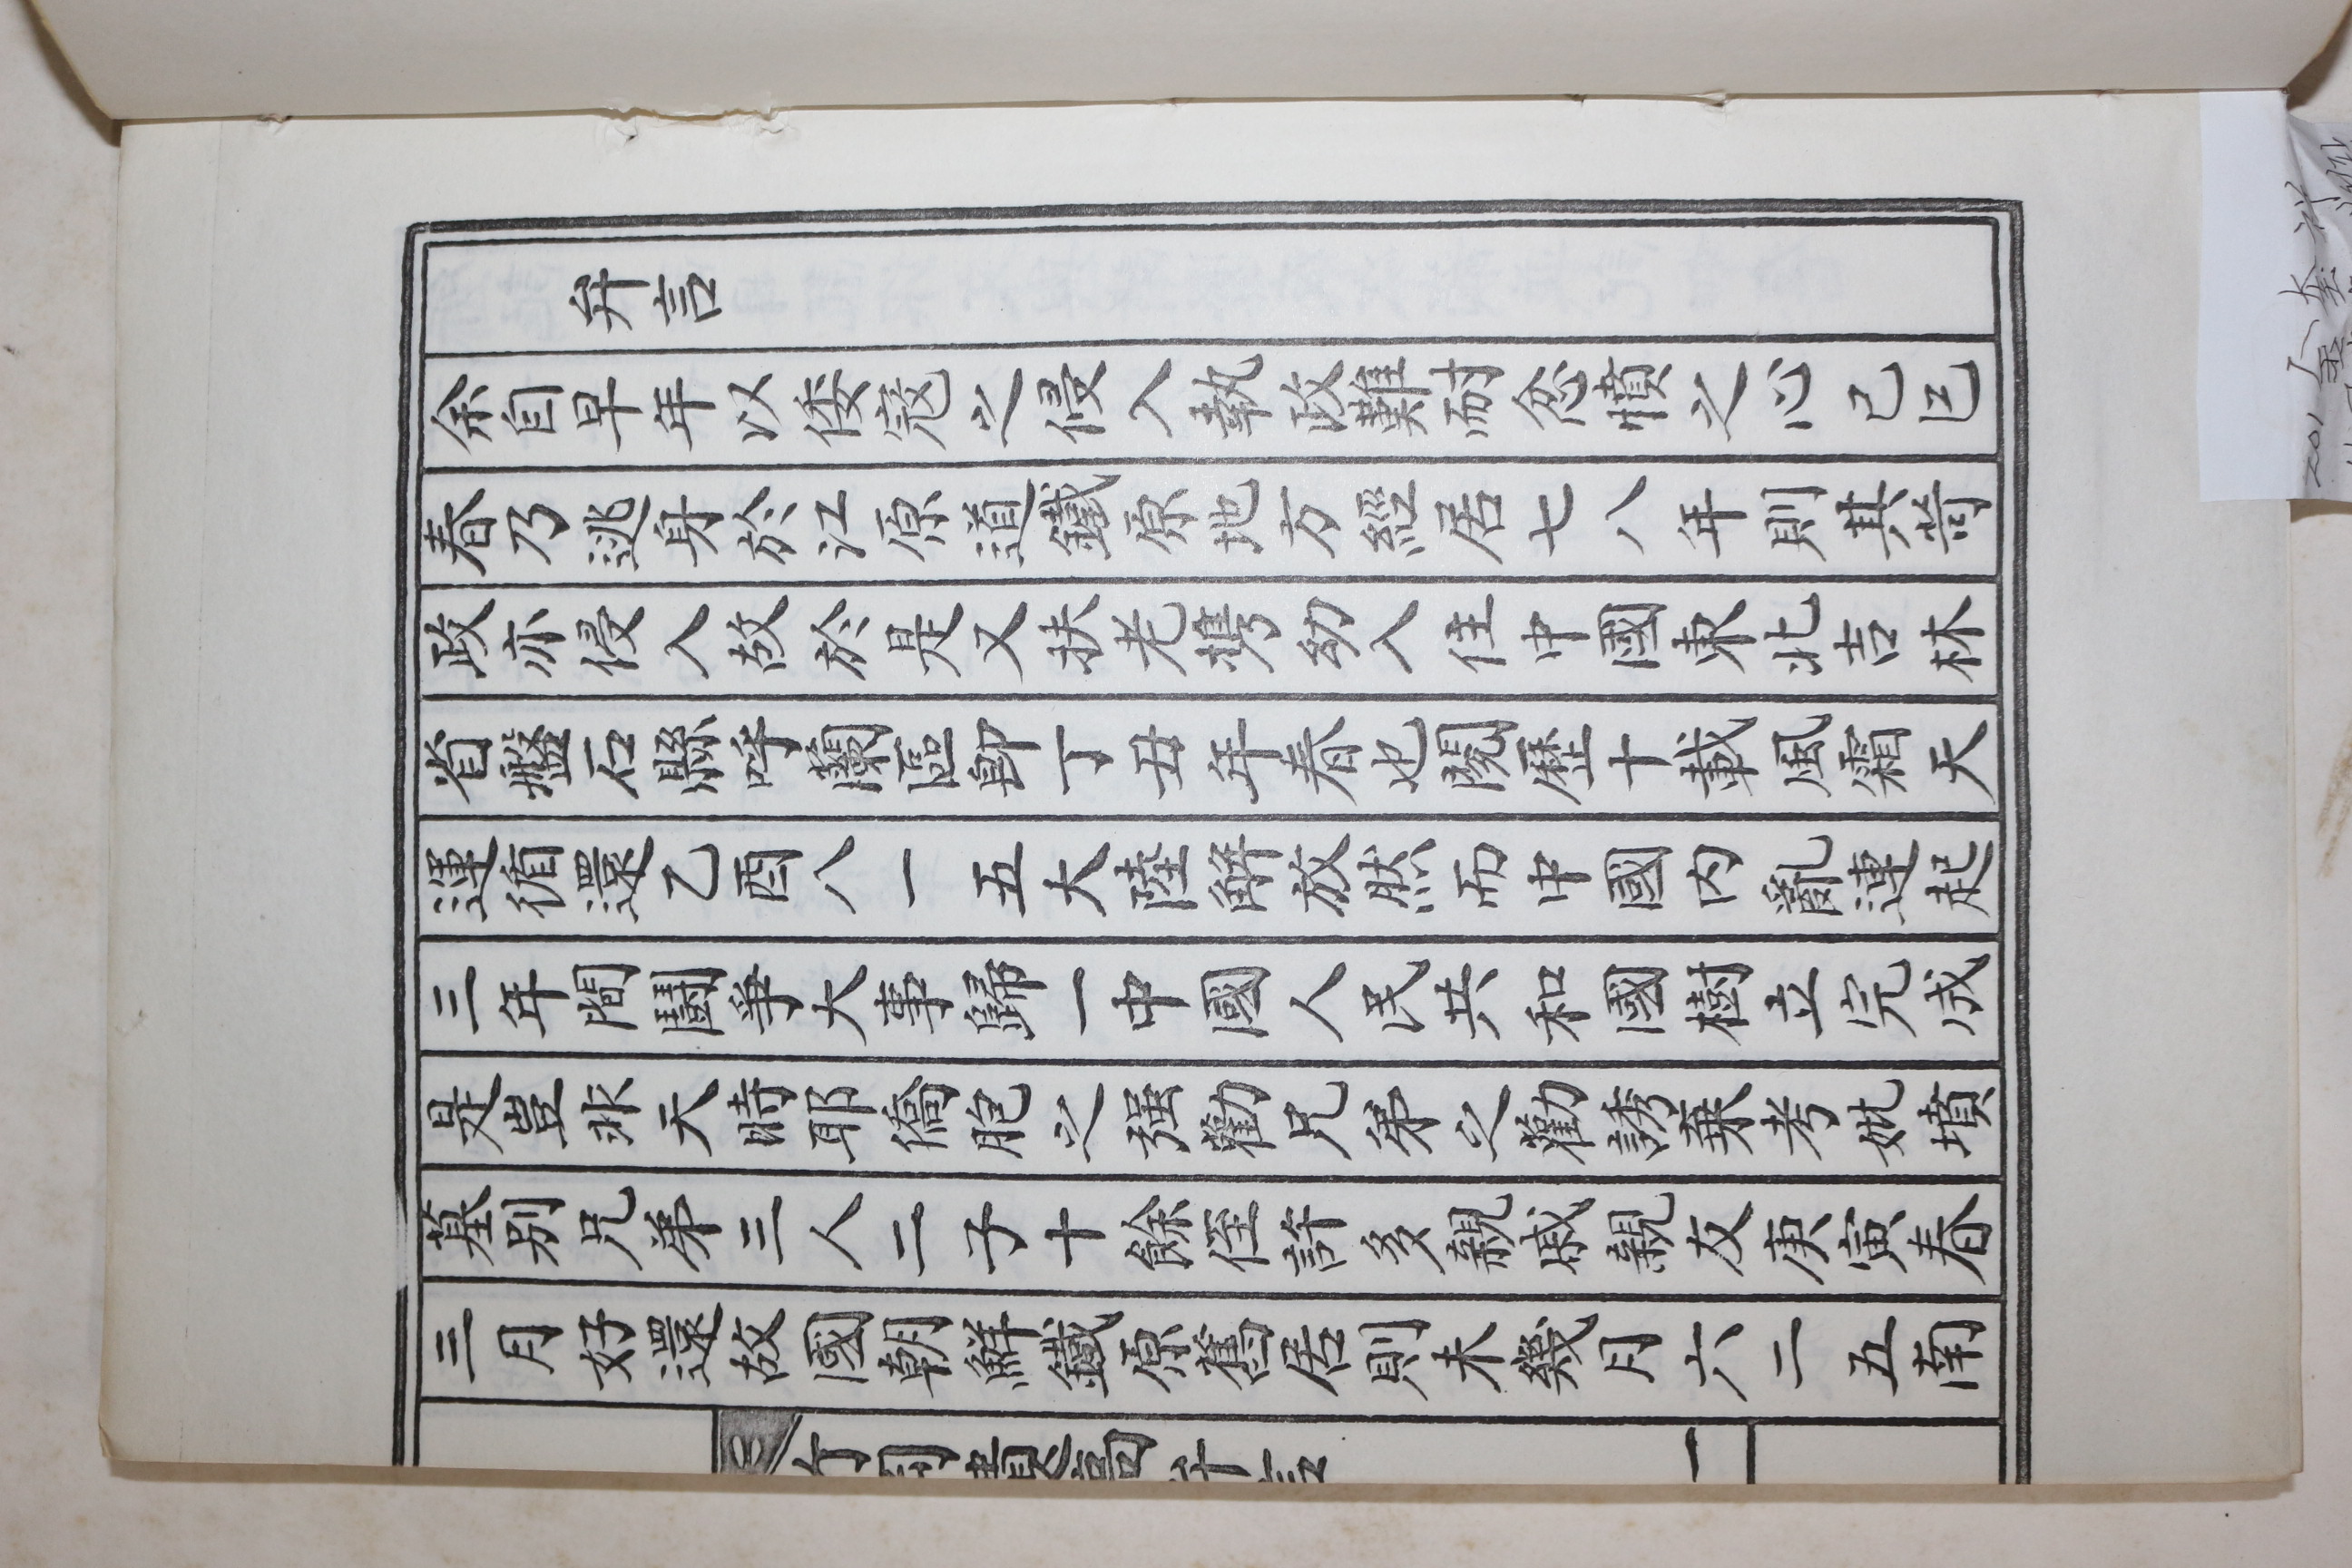 弁言
余自早年以倭寇之侵入執政難耐忿憤之心己巳
春乃逃身於江原道鐵原地方經居七八年則其苛
政亦侵入故於是又扶老携幼入住中國東北吉林
省盤石縣呼蘭區卽丁丑年春也閱歷十載風霜天
運循還乙酉八一五大陸解放然而中國內亂連起
三年間鬪爭大事歸一中國人民共和國樹立完成
是豈非天時耶僑胞之强勸兄弟之勸誘棄考妣墳
墓別兄弟三人二子十餘侄許多親戚親友庚寅春
三月好還故國朝鮮鐵原舊居則未幾月六二五南
竹圃遺稿弁言
一
201 金奎